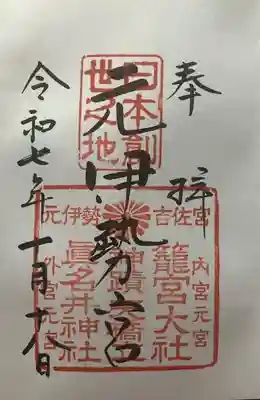 奉拝
日本創
世之地
元伊勢宮
令和七年十月十八日
元伊勢 吉佐宮
内宮元宮
籠宮大社
眞名井神社
外宮元宮